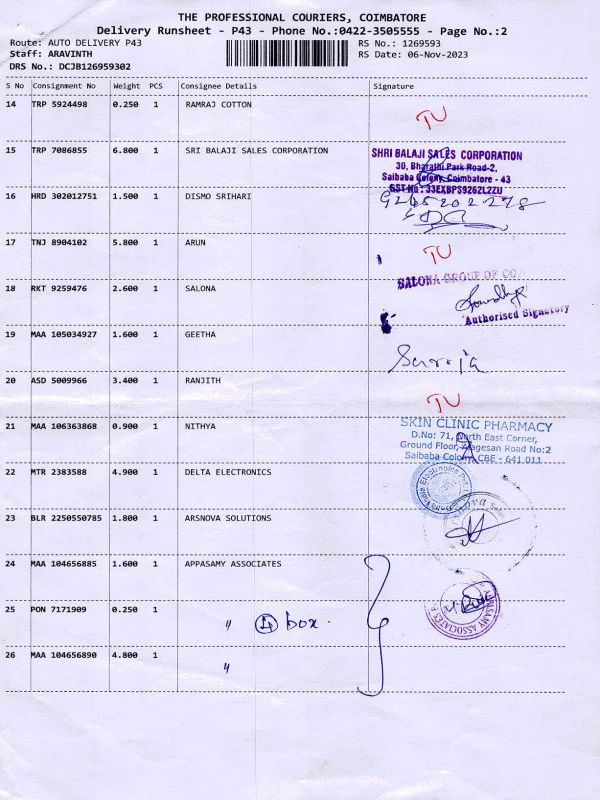 THE PROFESSIONAL COURIERS, COIMBATORE
Delivery Runsheet - P43 - Phone No.:0422-3505555 - Page No.:2
Route: AUTO DELIVERY P43
RS No.: 1269593
Staff: ARAVINTH
RS Date: 06-Nov-2023
DRS No.: DCJB126959302
S No Consignment No Weight PCS Consignee Details Signature
14 TRP 5924498 0.250 1 RAMRAJ COTTON
TU
15 TRP 7086855 6.800 1 SRI BALAJI SALES CORPORATION
SHRI BALAJI SALES CORPORATION
30, Bharathi Park Road-2,
Saibaba Colony, Coimbatore - 43
GST No : 33EXBPS9262L2ZU
16 HRD 302012751 1.500 1 DISMO SRIHARI
17 TNJ 8904102 5.800 1 ARUN
TU
18 RKT 9259476 2.600 1 SALONA
SALONA GROUP OF CO
Authorised Signatory
19 MAA 105034927 1.600 1 GEETHA
Saroja
20 ASD 5009966 3.400 1 RANJITH
TU
21 MAA 106363868 0.900 1 NITHYA
SKIN CLINIC PHARMACY
D.No: 71, North East Corner,
Ground Floor, Alagesan Road No:2
Saibaba Colony, CBE - 641 011
22 MTR 2383588 4.900 1 DELTA ELECTRONICS
23 BLR 2250550785 1.800 1 ARSNOVA SOLUTIONS
24 MAA 104656885 1.600 1 APPASAMY ASSOCIATES
25 PON 7171909 0.250 1 〃 4 box.
APPASAMY ASSOCIATES
26 MAA 104656890 4.800 1 〃